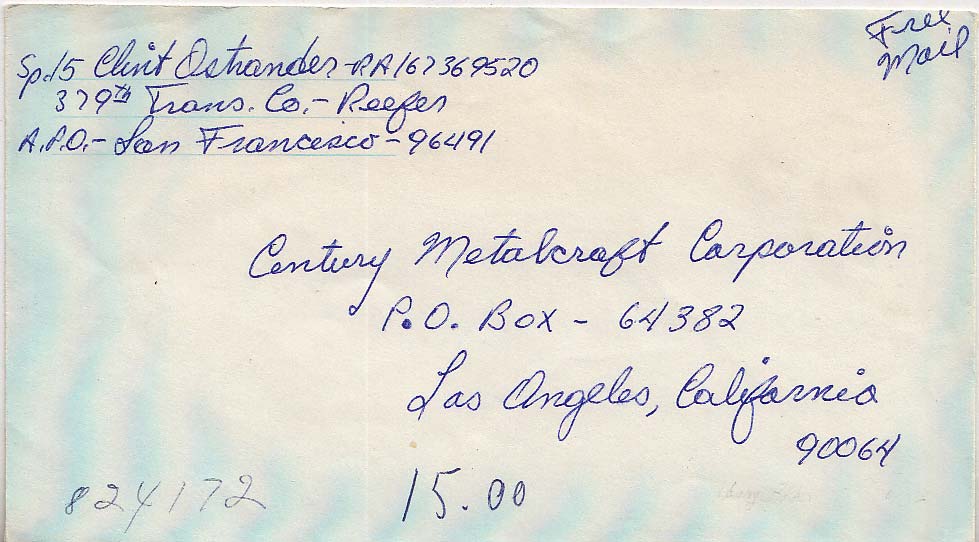 Free
Mail
Sp.15 Clint Ostrander - RA167369520
379th Trans. Co. - Reefer
A.P.O. - San Francisco - 96491
Century Metalcraft Corporation
P.O. Box - 64382
Los Angeles, California
90064
824172
15.00